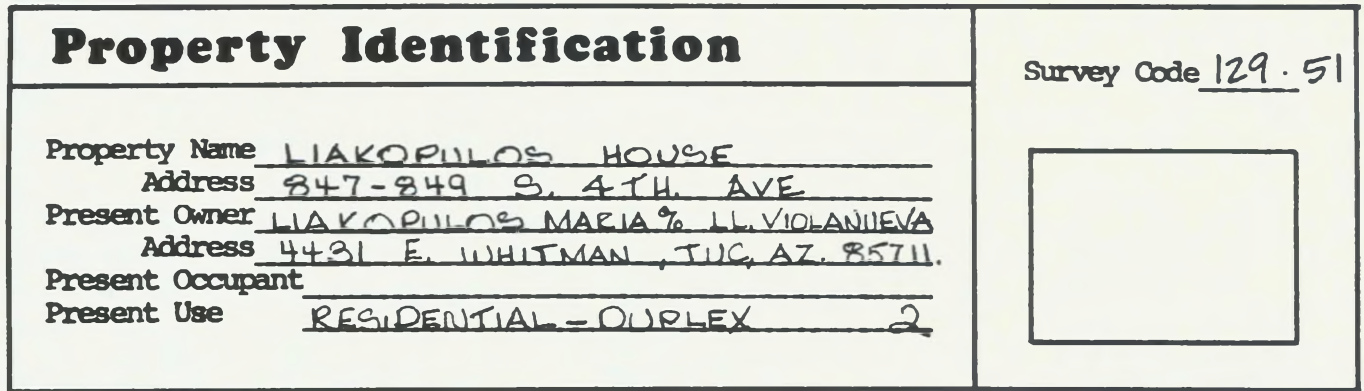 Property Identification
Survey Code 129.51
Property Name LIAKOPULOS HOUSE
Address 847-849 S. 4TH. AVE
Present Owner LIAKOPULOS MARIA % LL. VIOLANUEVA
Address 4431 E. WHITMAN, TUC, AZ. 85711.
Present Occupant
Present Use RESIDENTIAL - DUPLEX 2